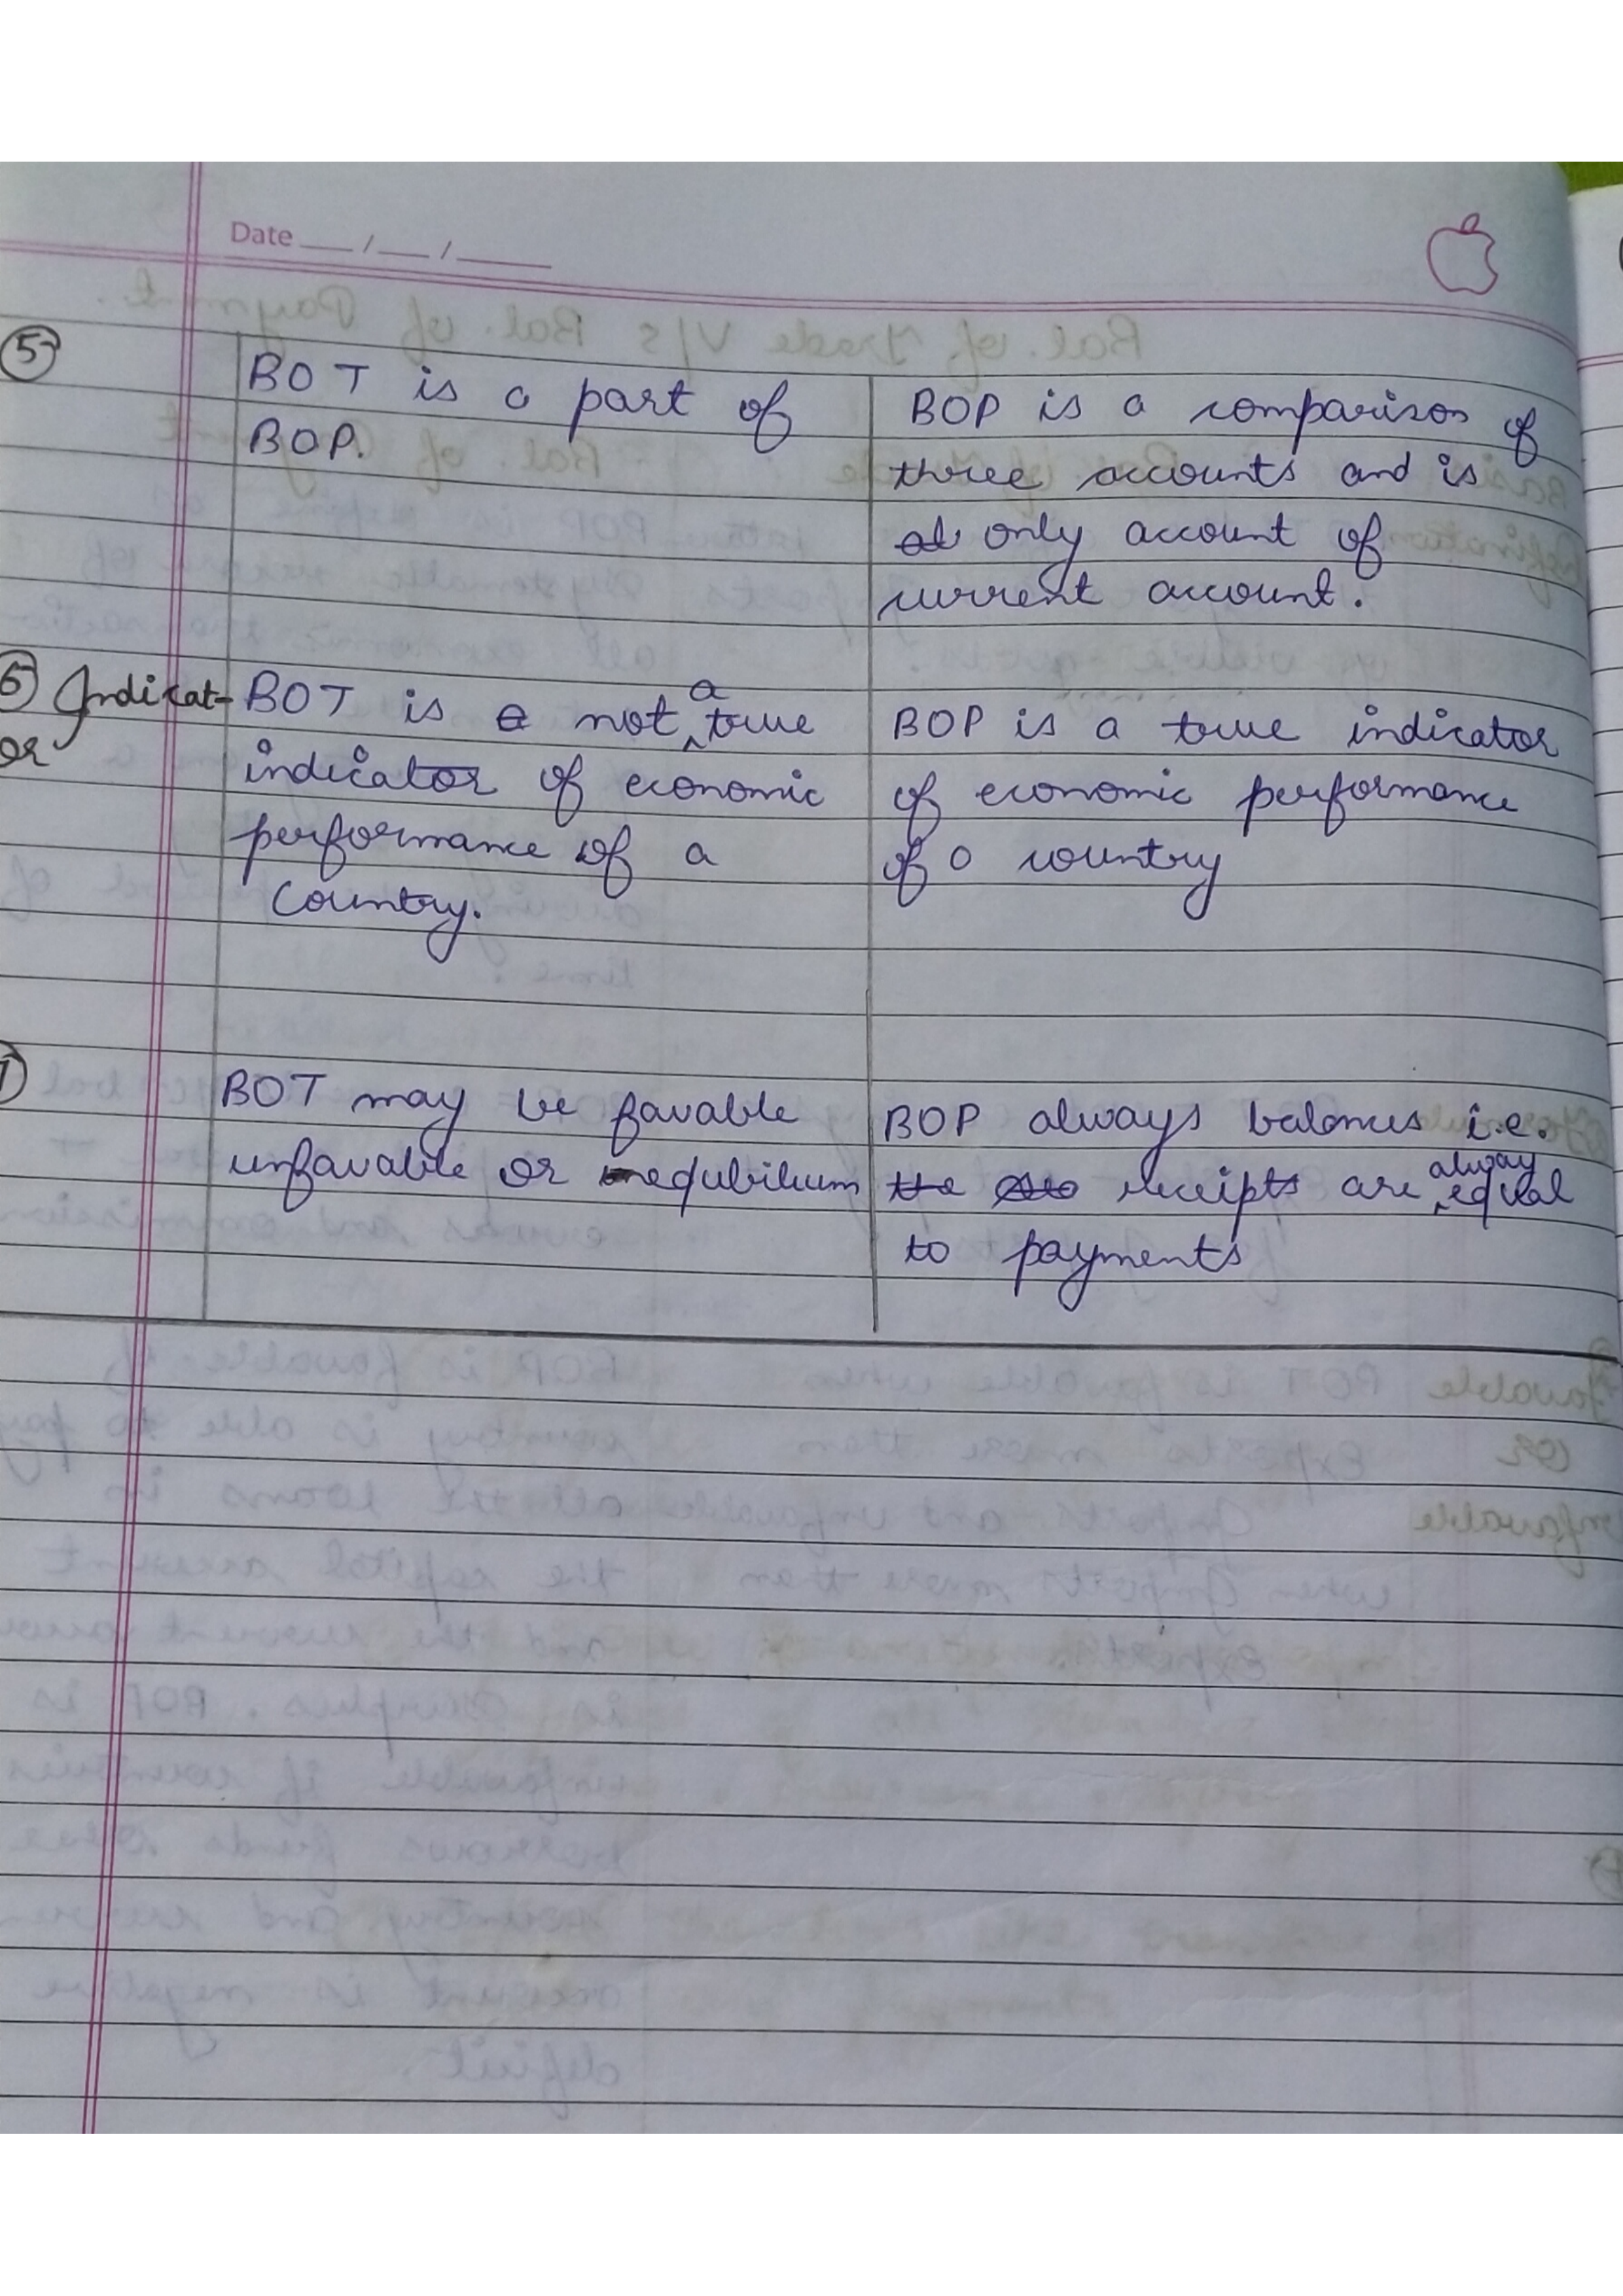 Date __/__/____
5 BOT is a part of
BOP.
BOP is a comparison of
three accounts and is
only account of
current account.
6 Indicat-
or
BOT is not a true
indicator of economic
performance of a
Country.
BOP is a true indicator
of economic performance
of a country
BOT may be favable
unfavable or equbilium
BOP always balances i.e.
receipts are alway equal
to payments